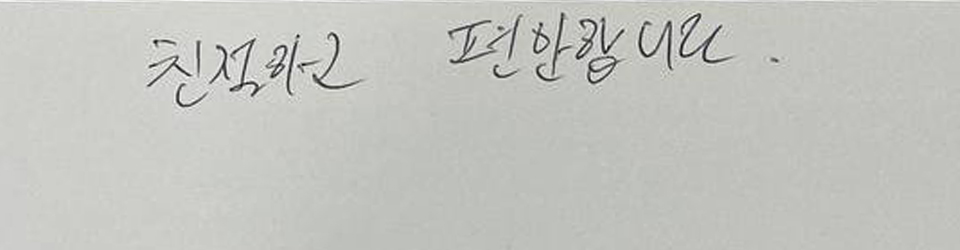 친절하고 편안합니다.